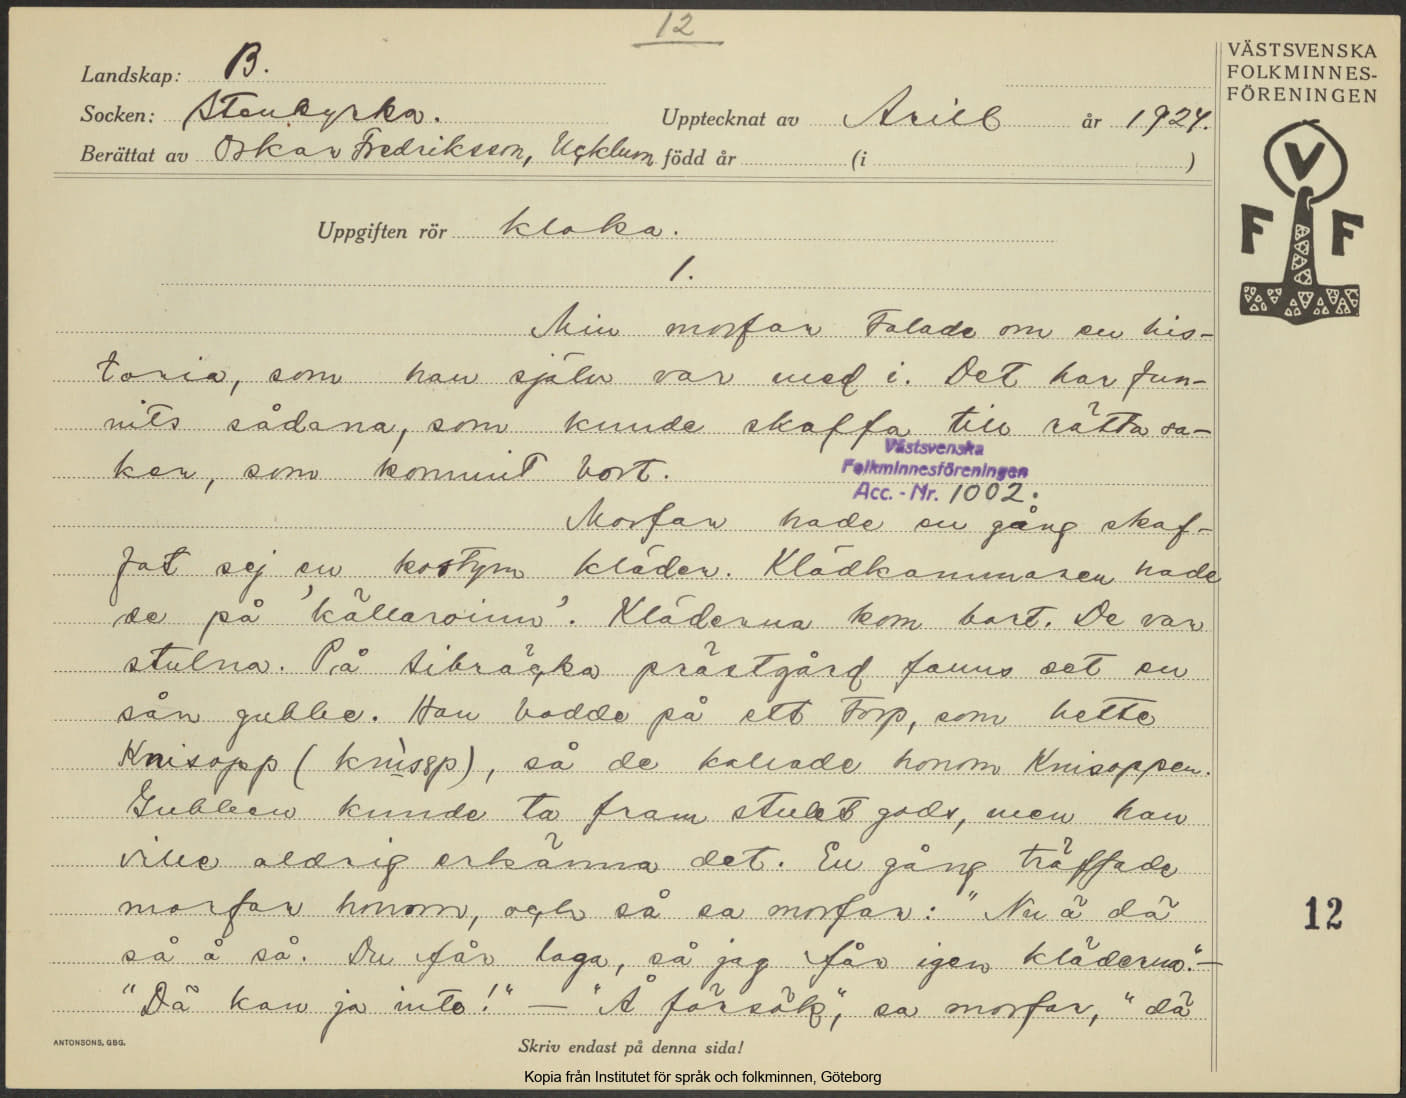 12
Landskap: B.
Socken: Stenkyrka.
Upptecknat av Arill år 1924.
Berättat av Oskar Fredriksson, Ucklum född år (i )
VÄSTSVENSKA
FOLKMINNES-
FÖRENINGEN
V
F F
Uppgiften rör kloka.
1.
Min morfar talade om en his-
toria, som han själv var med i. Det har fun-
nits sådana, som kunde skaffa till rätta sa-
ker, som kommit bort.
Västsvenska
Folkminnesföreningen
Acc. - Nr. 1002.
Morfar hade en gång skaf-
fat sej en kostym kläder. Klädkammaren hade
de på 'källaroinn'. Kläderna kom bort. De var
stulna. På Sibräcka prästgård fanns det en
sån gubbe. Han bodde på ett torp, som hette
Knisopp ( ), så de kallade honom Knisoppen.
Gubben kunde ta fram stulet gods, men han
ville aldrig erkänna det. En gång träffade
morfar honom, och så sa morfar: "Nu ä dä
så å så. Du får laga, så jag får igen kläderna." —
"Dä kan ja inte!" — "Å försök", sa morfar, "dä
12
ANTONSONS, GBG.
Skriv endast på denna sida!
Kopia från Institutet för språk och folkminnen, Göteborg